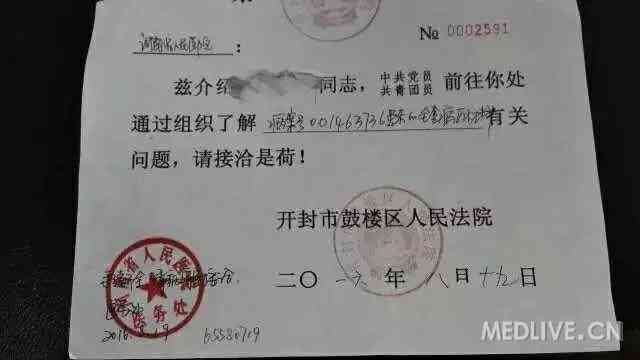 № 0002591
河南省人民医院：
兹介绍 同志，中共党员 共青团员 前往你处
通过组织了解 病案号001463736 有关
问题，请接洽是荷！
开封市鼓楼区人民法院
二〇一六年八月十九日
省人民医院
医务处
2016.8.19 65580719
MEDLIVE.CN